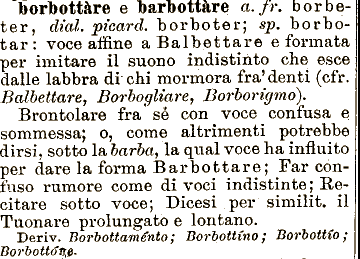 borbottàre e barbottàre a. fr. borbe-
ter, dial. picard. borboter; sp. borbo-
tar: voce affine a Balbettare e formata
per imitare il suono indistinto che esce
dalle labbra di chi mormora fra' denti (cfr.
Balbettare, Borbogliare, Borborigmo).
Brontolare fra sé con voce confusa e
sommessa; o, come altrimenti potrebbe
dirsi, sotto la barba, la qual voce ha influito
per dare la forma Barbottare; Far con-
fuso rumore come di voci indistinte; Re-
citare sotto voce; Dicesi per similit. il
Tuonare prolungato e lontano.
Deriv. Borbottaménto; Borbottíno; Borbottío;
Borbottóne.